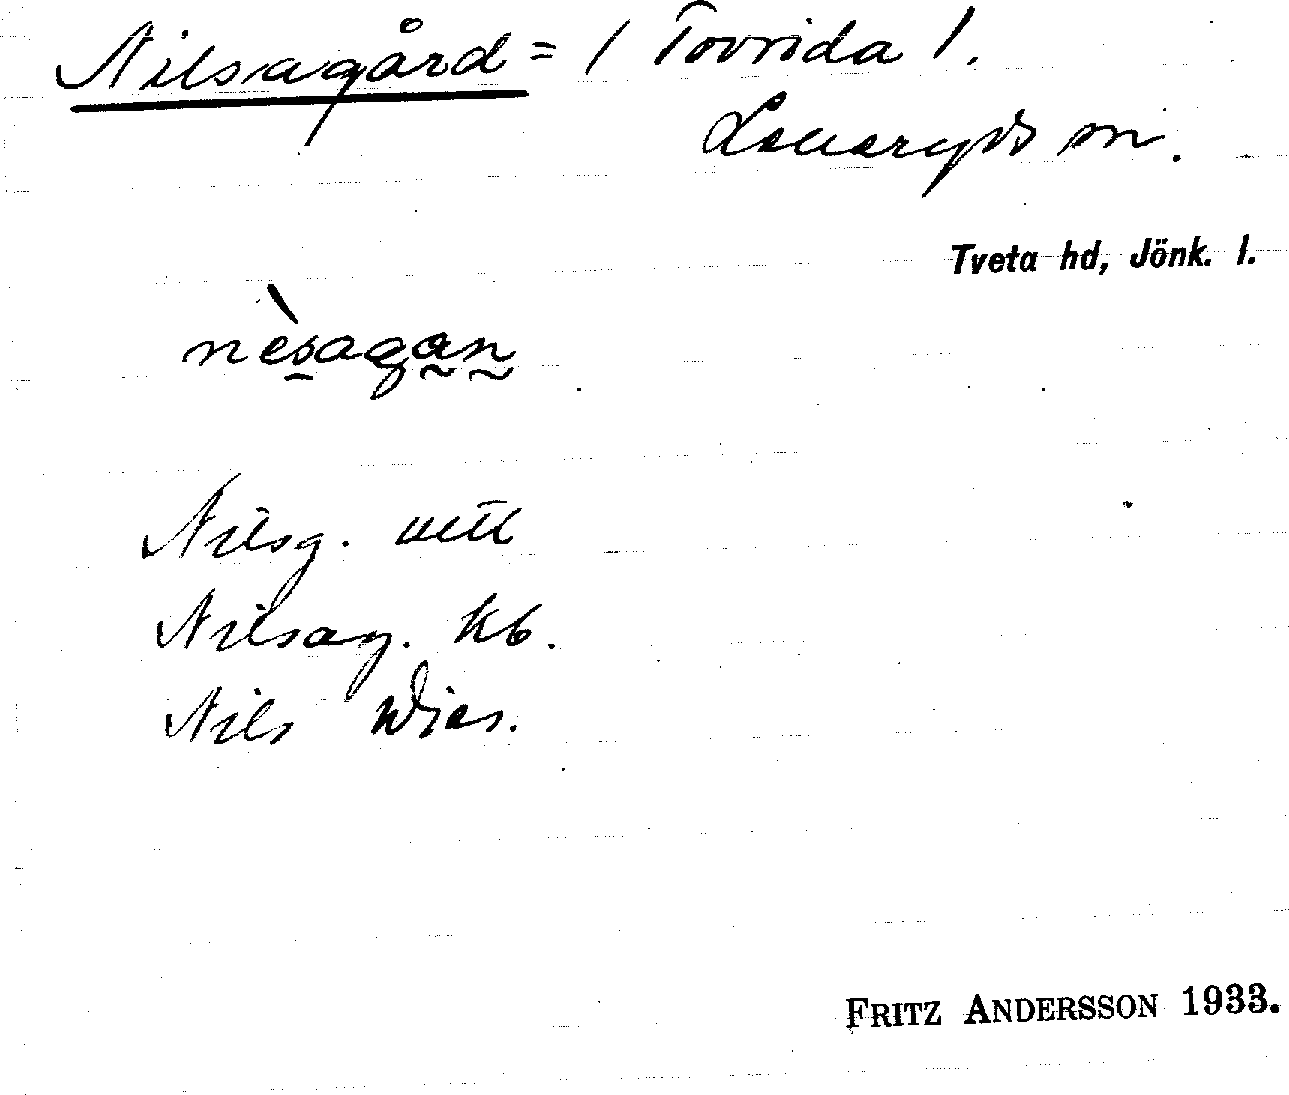 Nilsagård = / Tovrida /.
Lekeryds sn.
Tveta hd, Jönk. l.
nèsagan
Nilsg. uttl
Nilsag. kb.
Nils
FRITZ ANDERSSON 1933.